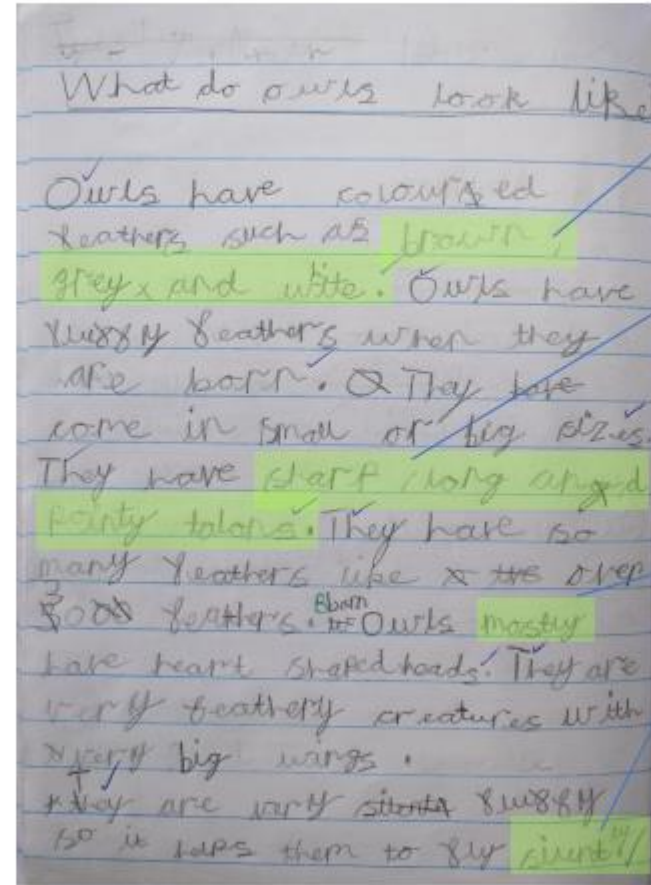 What do owls look like
Owls have coloured
feathers such as brown,
grey, and white. Owls have
fluffy feathers when they
are born. They have
come in small or big sizes.
They have sharp, long and
pointy talons. They have so
many feathers like over
feathers. Barn Owls mostly
have heart shaped heads. They are
very feathery creatures with
very big wings.
They are very silents fluffy
so it helps them to fly siuntly